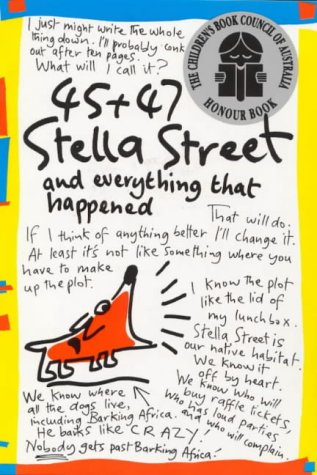 I just might write the whole
thing down. I'll probably conk
out after ten pages.
What will I call it?
THE CHILDREN'S BOOK COUNCIL OF AUSTRALIA
HONOUR BOOK
45+47
Stella Street
and everything that
happened
That will do.
If I think of anything better I'll change it.
At least it's not like something where you
have to make
up the plot.
I know the plot
like the lid of
my lunchbox.
Stella Street is
our native habitat.
We know it
off by heart.
We know who will
buy raffle tickets,
who has loud parties
and who will complain.
We know where
all the dogs live,
including Barking Africa.
He barks like CRAZY!
Nobody gets past Barking Africa!